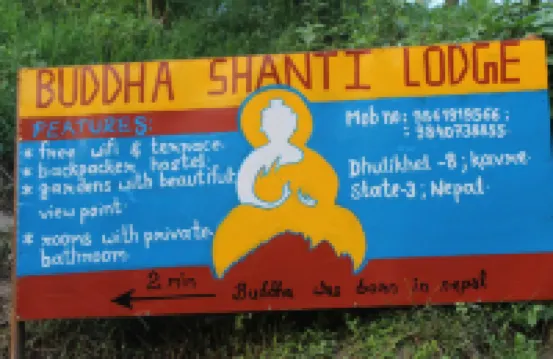 BUDDHA SHANTI LODGE
FEATURES:
* free wifi & terrace
* backpacker hostel
* gardens with beautiful
view point
* rooms with private
bathroom
Mob no:
Dhulikhel -8; kavre
State-3; Nepal
2 min
Buddha was born in nepal